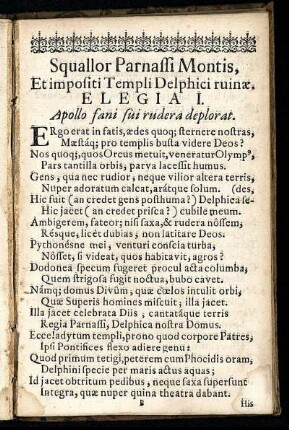 Squallor Parnassi Montis,
Et impositi Templi Delphici ruinæ.
ELEGIA I.
Apollo fani sui rudera deplorat.
ERgo erat in fatis, ædes quoq; sternere nostras,
Mæstáq; pro templis busta videre Deos?
Nos quoq;, quos Orcus metuit, veneratur Olympꝰ,
Pars tantilla orbis, parva lacessit humus.
Gens, qua nec rudior, neque vilior altera terris,
Nuper adoratum calcat, arátque solum. (des,
Hic fuit (an credet gens posthuma?) Delphica se-
Hic jacet (an credet prisca?) cubile meum.
Ambigerem, fateor; nisi saxa, & rudera nôssem;
Résque, licèt dubias; non latitare Deos.
Pythonésne mei, venturi conscia turba,
Nôsset, si videat, quos habitavit, agros?
Dodonea specum sugeret procul acta columba;
Quem strigosa fugit noctua, bubo cavet.
Námq; domus Divûm, quæ cœlos intulit orbi,
Quæ Superis homines miscuit; illa jacet.
Illa jacet celebrata Diis; cantatáque terris
Regia Parnassi, Delphica nostra Domus.
Ecce! adytum templi, prono quod corpore Patres,
Ipsi Pontifices flexo adiere genu:
Quod primum tetigi, peterem cum Phocidis oram,
Delphini specie per maris actus aquas;
Id jacet obtritum pedibus, neque saxa supersunt
Integra, quæ nuper quina theatra dabant.
B His